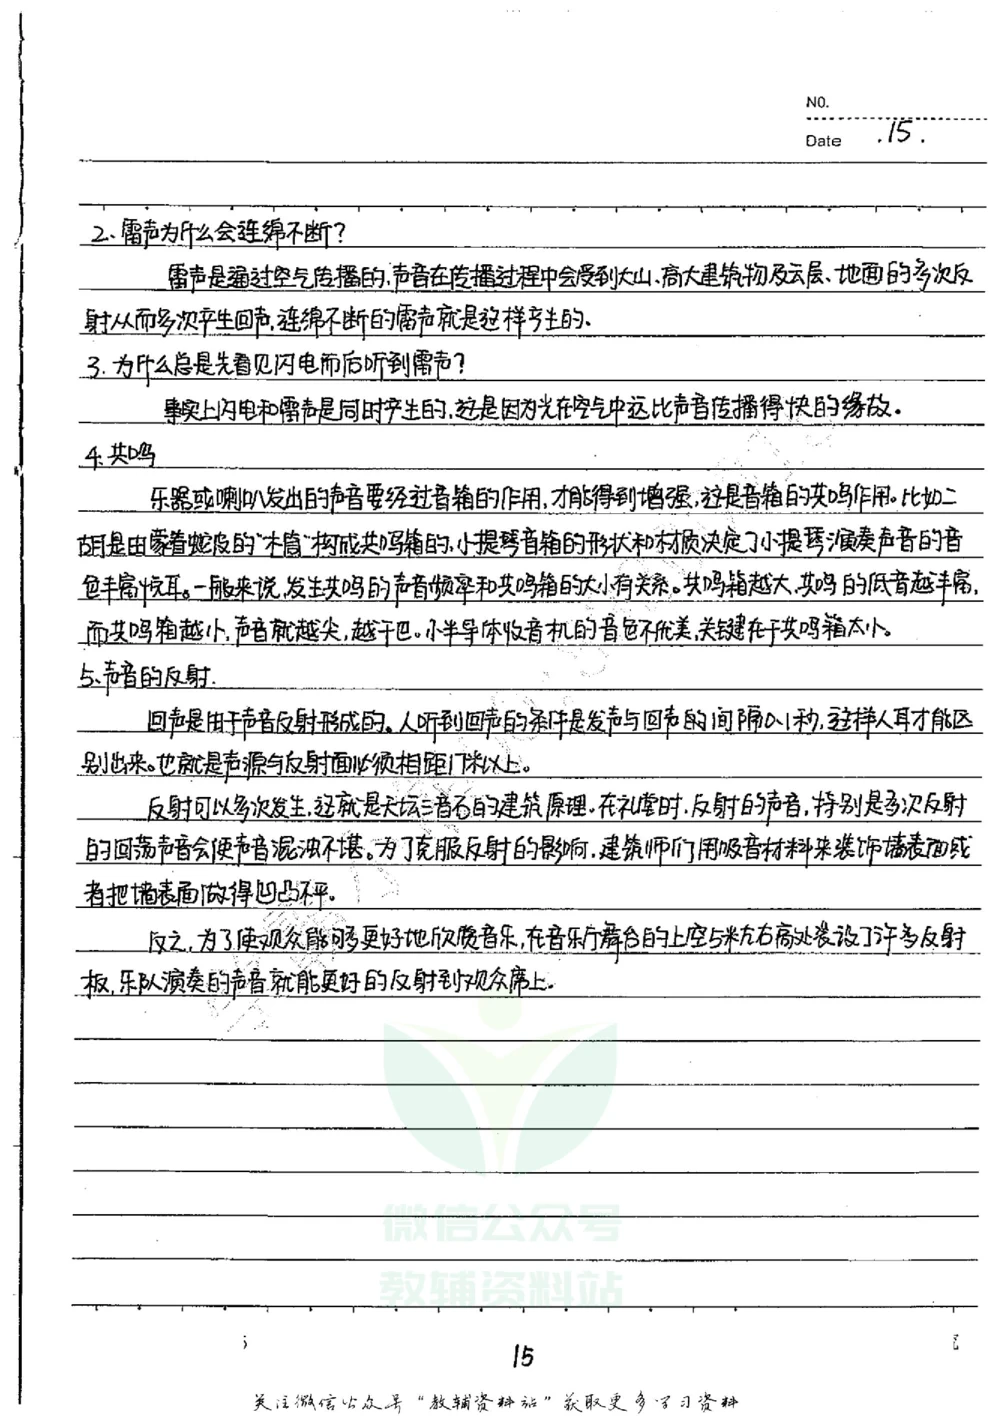 NO.
Date .15.
2、雷声为什么会连绵不断?
雷声是通过空气传播的,声音在传播过程中会受到大山、高大建筑物及云层、地面的多次反
射从而多次产生回声,连绵不断的雷声就是这样产生的、
3. 为什么总是先看见闪电而后听到雷声?
事实上闪电和雷声是同时产生的,这是因为光在空气中远比声音传播得快的缘故。
4、共鸣
乐器或喇叭发出的声音要经过音箱的作用,才能得到增强,这是音箱的共鸣作用。比如二
胡是由蒙着蛇皮的"木筒"构成共鸣箱的,小提琴音箱的形状和材质决定了小提琴演奏声音的音
色丰富悦耳。一般来说,发生共鸣的声音频率和共鸣箱的大小有关系。共鸣箱越大,共鸣的低音越丰富,
而共鸣箱越小,声音就越尖,越干巴。小半导体收音机的音色不优美,关键在于共鸣箱太小。
5、声音的反射.
回声是由于声音反射形成的。人听到回声的条件是发声与回声的间隔0.1秒,这样人耳才能区
别出来。也就是声源与反射面必须相距17米以上。
反射可以多次发生,这就是天坛三音石的建筑原理.在礼堂时,反射的声音,特别是多次反射
的回荡声音会使声音混浊不堪。为了克服反射的影响,建筑师们用吸音材料来装饰墙表面或
者把墙表面做得凹凸不平。
反之,为了使观众能够更好地欣赏音乐,在音乐厅舞台的上空5米左右高处装设了许多反射
板,乐队演奏的声音就能更好的反射到观众席上.
微信公众号
教辅资料站
15
关注微信公众号"教辅资料站"获取更多学习资料